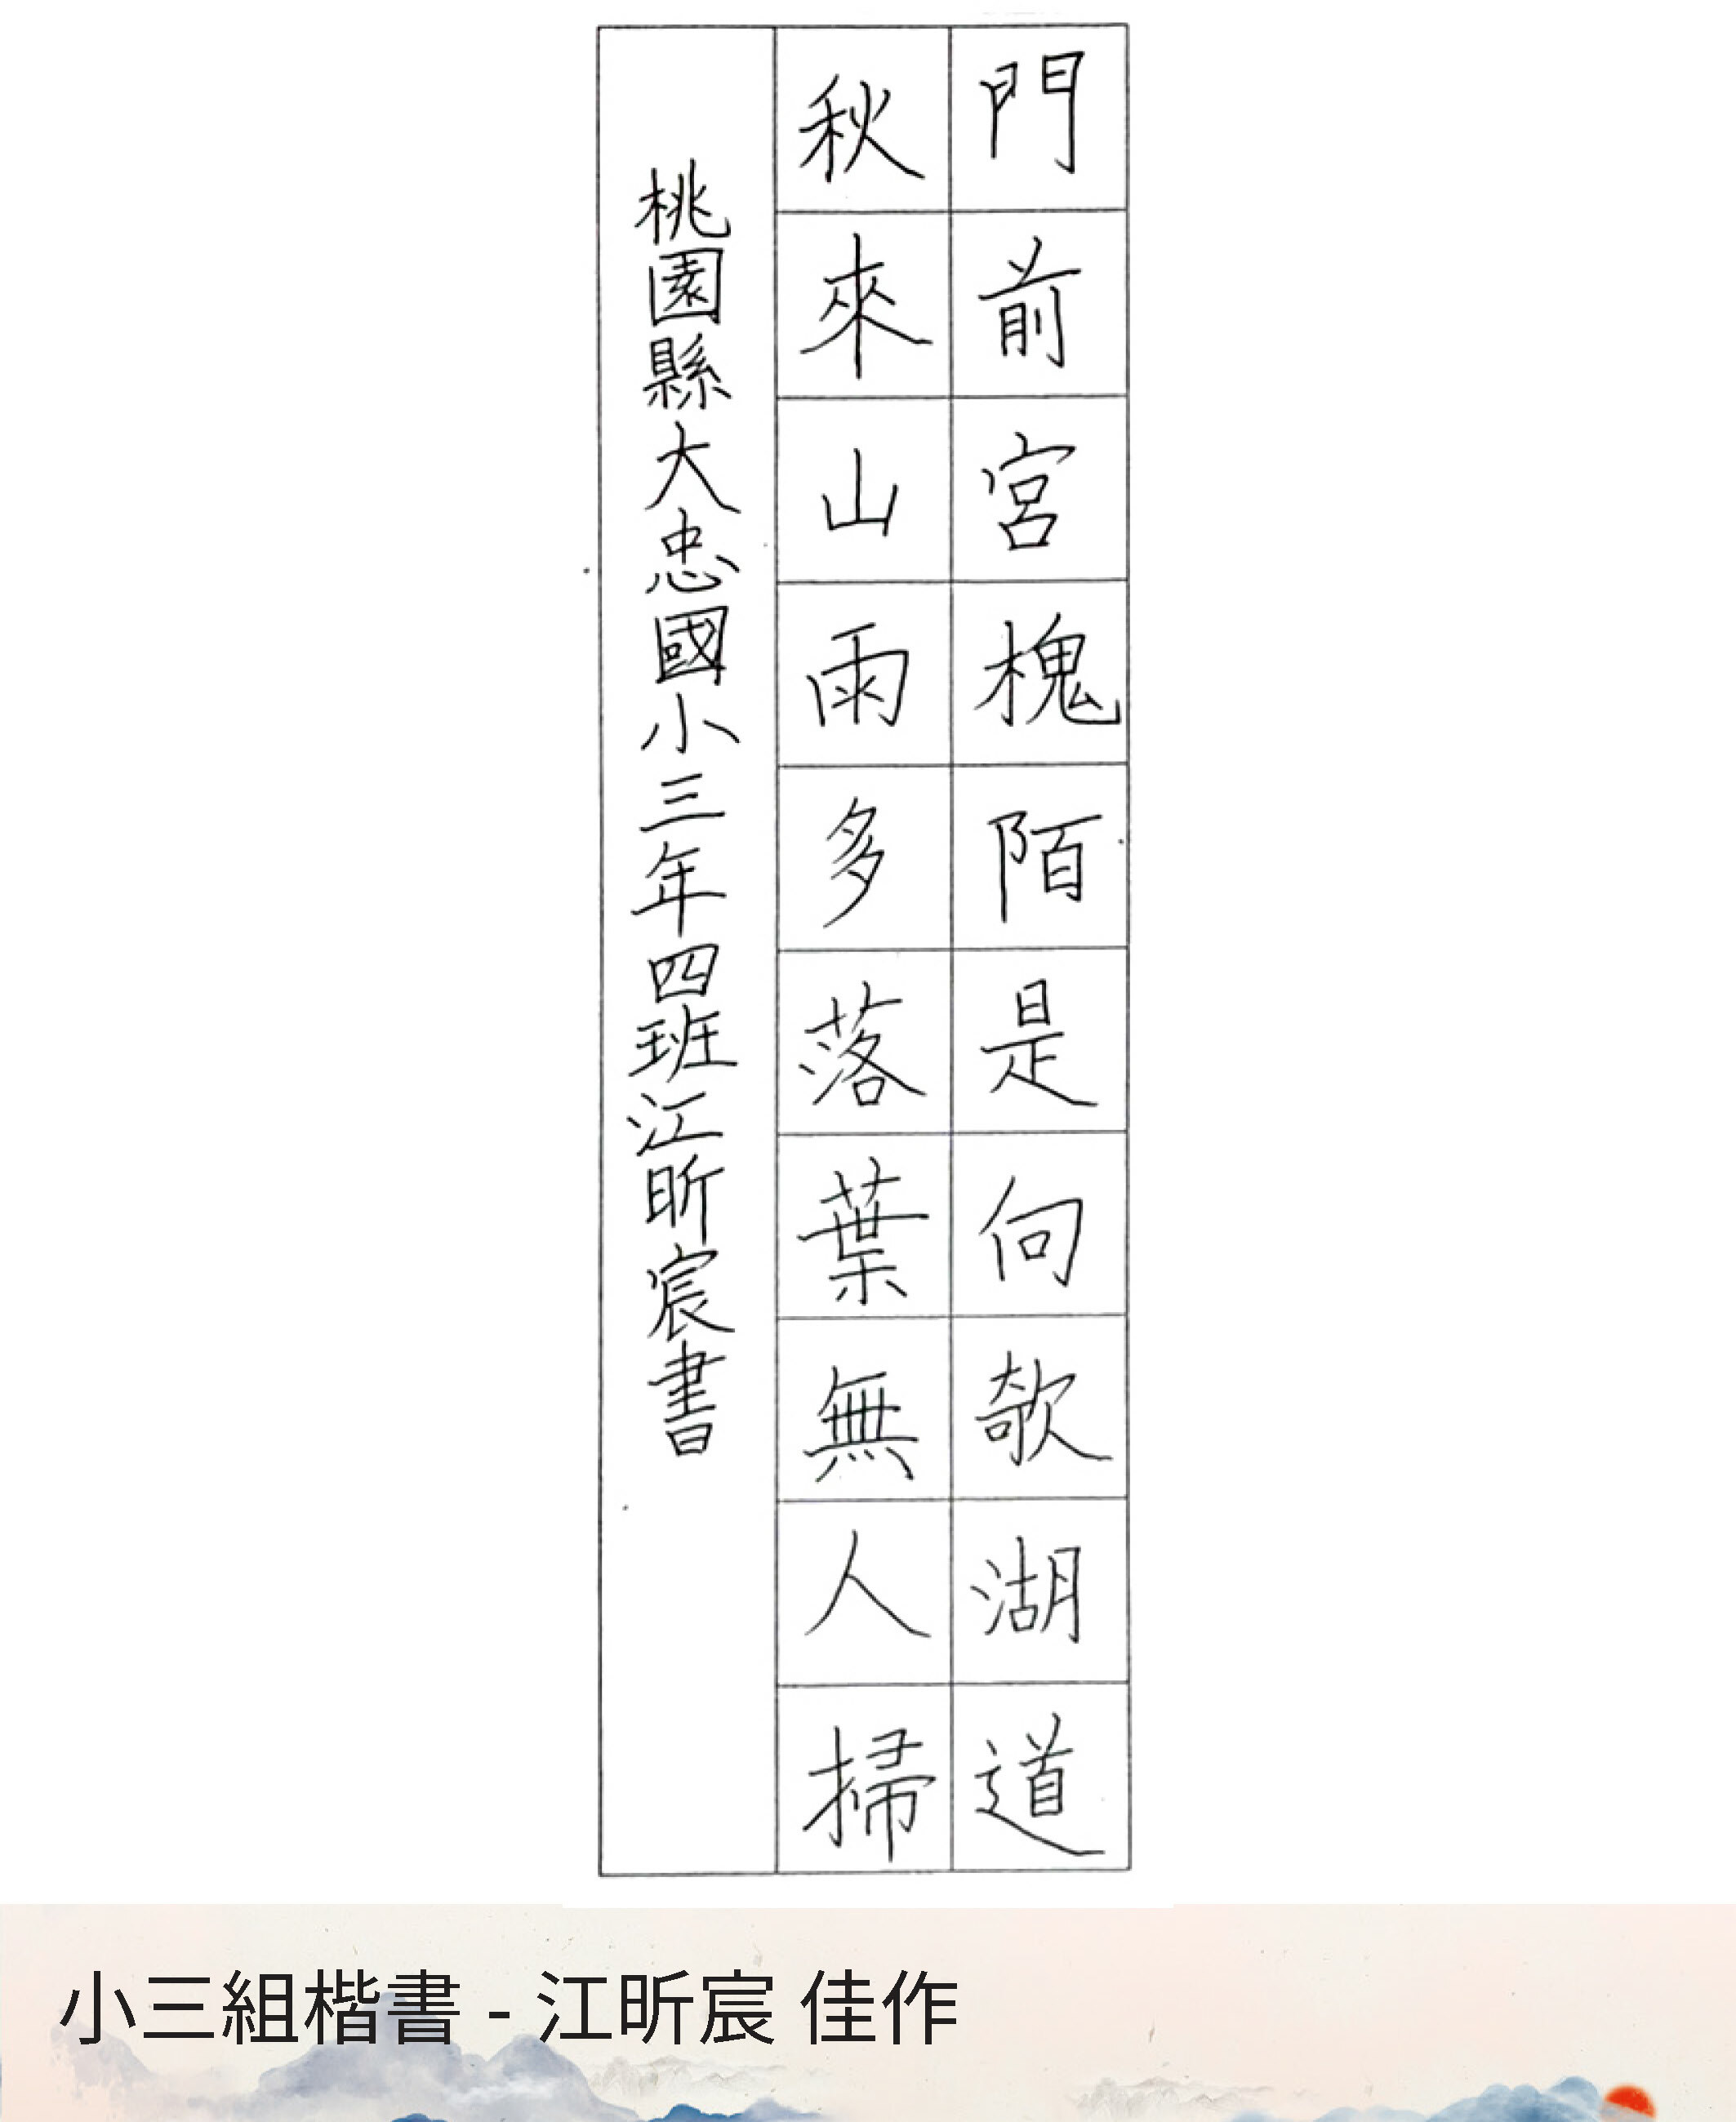 門前宮槐陌是向欹湖道
秋來山雨多落葉無人掃
桃園縣大忠國小三年四班江昕宸書
小三組楷書 - 江昕宸 佳作